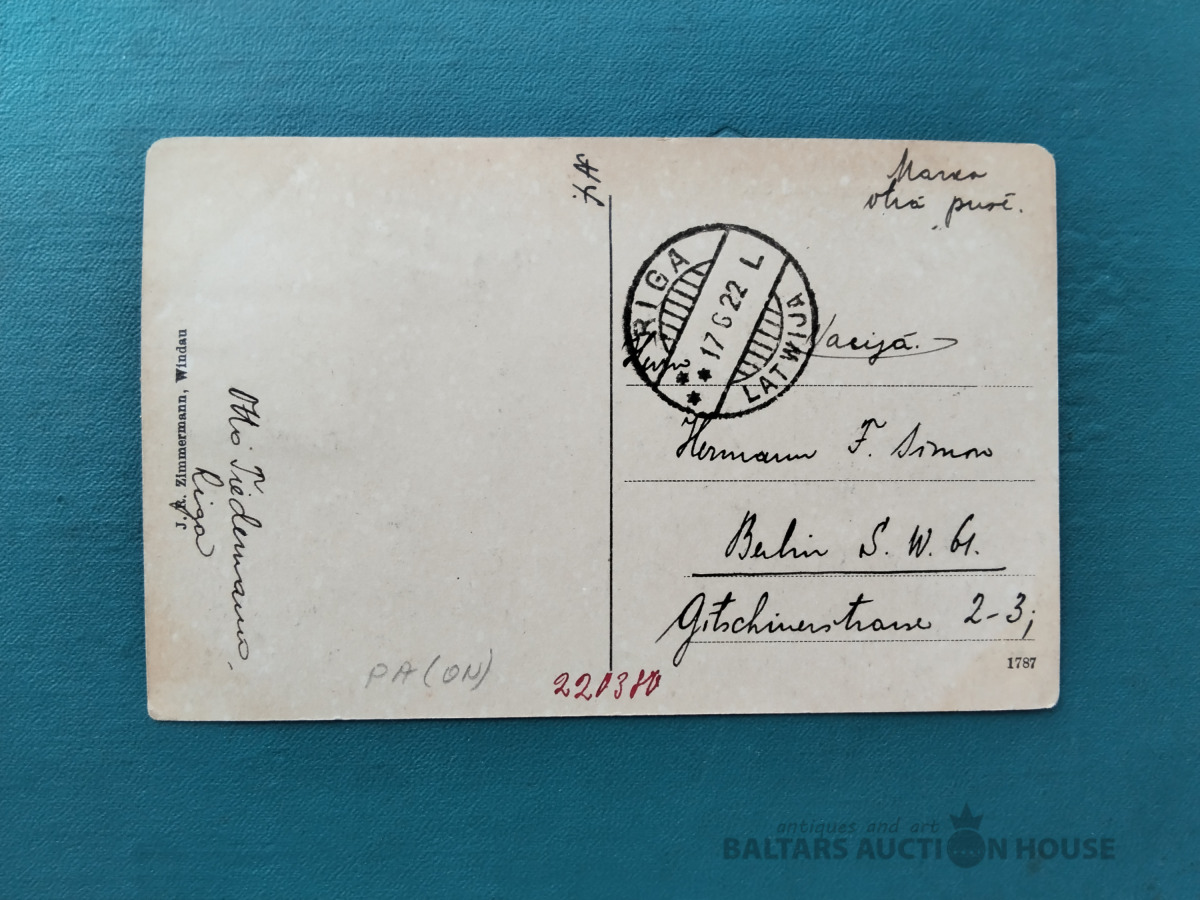 Marka
otrā pusē.
RIGA
17 6 22 L
LATWIJA
Vacijā.
Herrn
Hermann F. Simon
Berlin S. W. 61.
Gitschinerstrasse 2-3;
1787
J. R. Zimmermann, Windau
Otto Tiedemann,
Riga
PA (ON)
220380
antiques and art
BALTARS AUCTION HOUSE